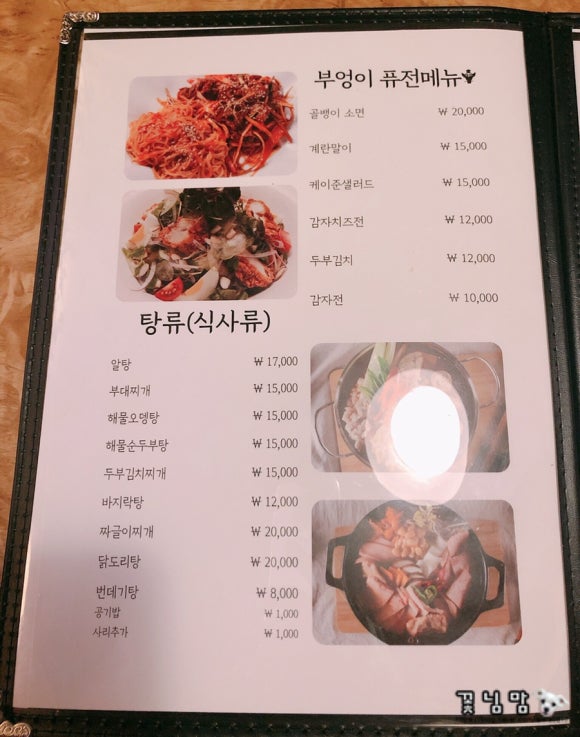 부엉이 퓨전메뉴
골뱅이 소면 ₩ 20,000
계란말이 ₩ 15,000
케이준샐러드 ₩ 15,000
감자치즈전 ₩ 12,000
두부김치 ₩ 12,000
감자전 ₩ 10,000
탕류(식사류)
알탕 ₩ 17,000
부대찌개 ₩ 15,000
해물오뎅탕 ₩ 15,000
해물순두부탕 ₩ 15,000
두부김치찌개 ₩ 15,000
바지락탕 ₩ 12,000
짜글이찌개 ₩ 20,000
닭도리탕 ₩ 20,000
번데기탕 ₩ 8,000
공기밥 ₩ 1,000
사리추가 ₩ 1,000
꽃님맘